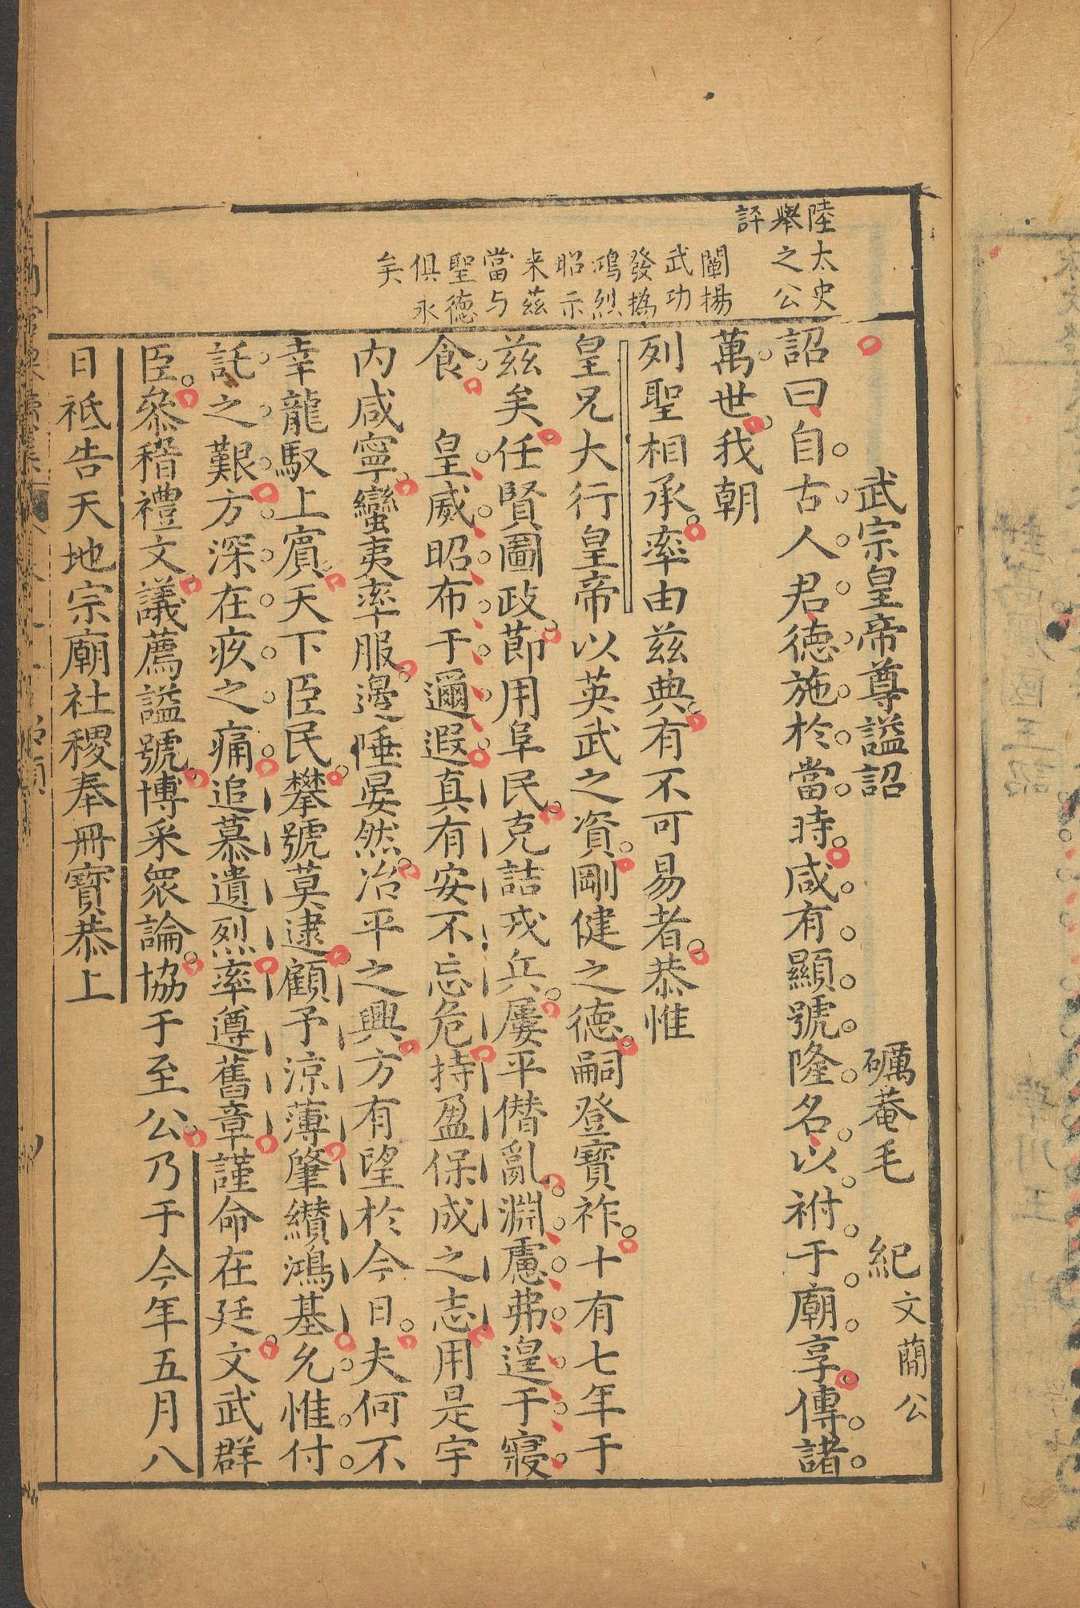 陸太史
舉之公
評
闡揚
武功
發撝
鴻烈
昭示
来茲
當与
聖德
俱永
矣
武宗皇帝尊謚詔 礪菴毛 紀 文簡公
詔曰自古人君德施於當時咸有顯號隆名以祔于廟享傳諸
萬世我朝
列聖相承率由兹典有不可易者恭惟
皇兄大行皇帝以英武之資剛健之德嗣登寶祚十有七年于
兹矣任賢圖政節用阜民克詰戎兵屢平僭亂淵慮弗遑于寢
食 皇威昭布于邇遐真有安不忘危持盈保成之志用是宇
内咸寧蠻夷率服邊陲晏然治平之興方有望於今日夫何不
幸龍馭上賓天下臣民攀號莫逮顧予涼薄肇纘鴻基允惟付
託之艱方深在疚之痛追慕遺烈率遵舊章謹命在廷文武群
臣叅稽禮文議薦謚號博采衆論協于至公乃于今年五月八
日祗告天地宗廟社稷奉冊寶恭上